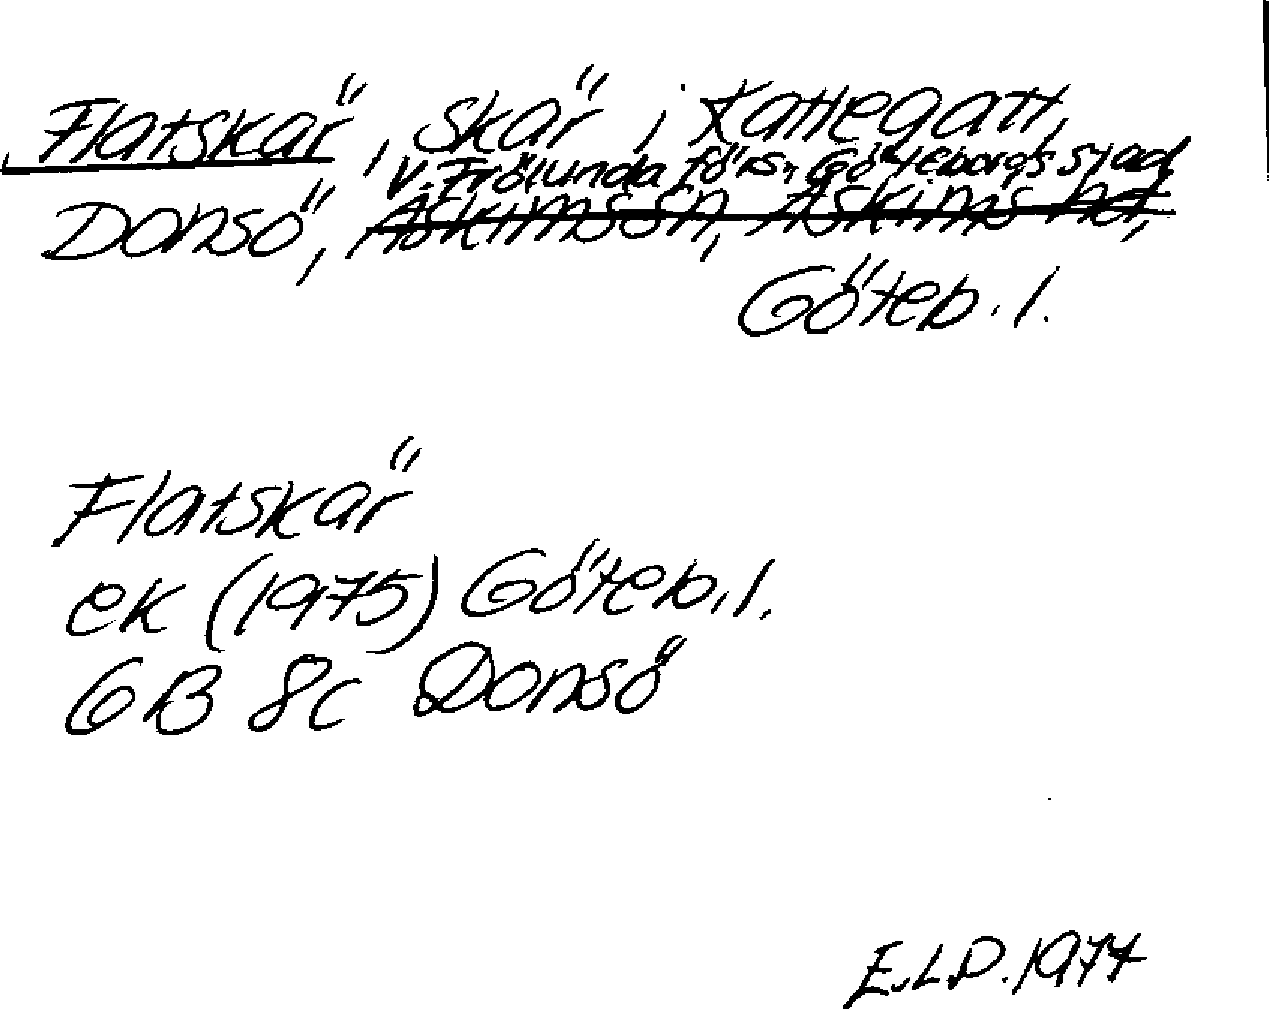 Flatskär, skär i Kattegatt,
V. Frölunda förs., Göteborgs stad,
Donsö, Askims sn, Askims hd,
Göteb. l.
Flatskär
ek (1975) Göteb. l.
GB 8c Donsö
E.L.D. 1977